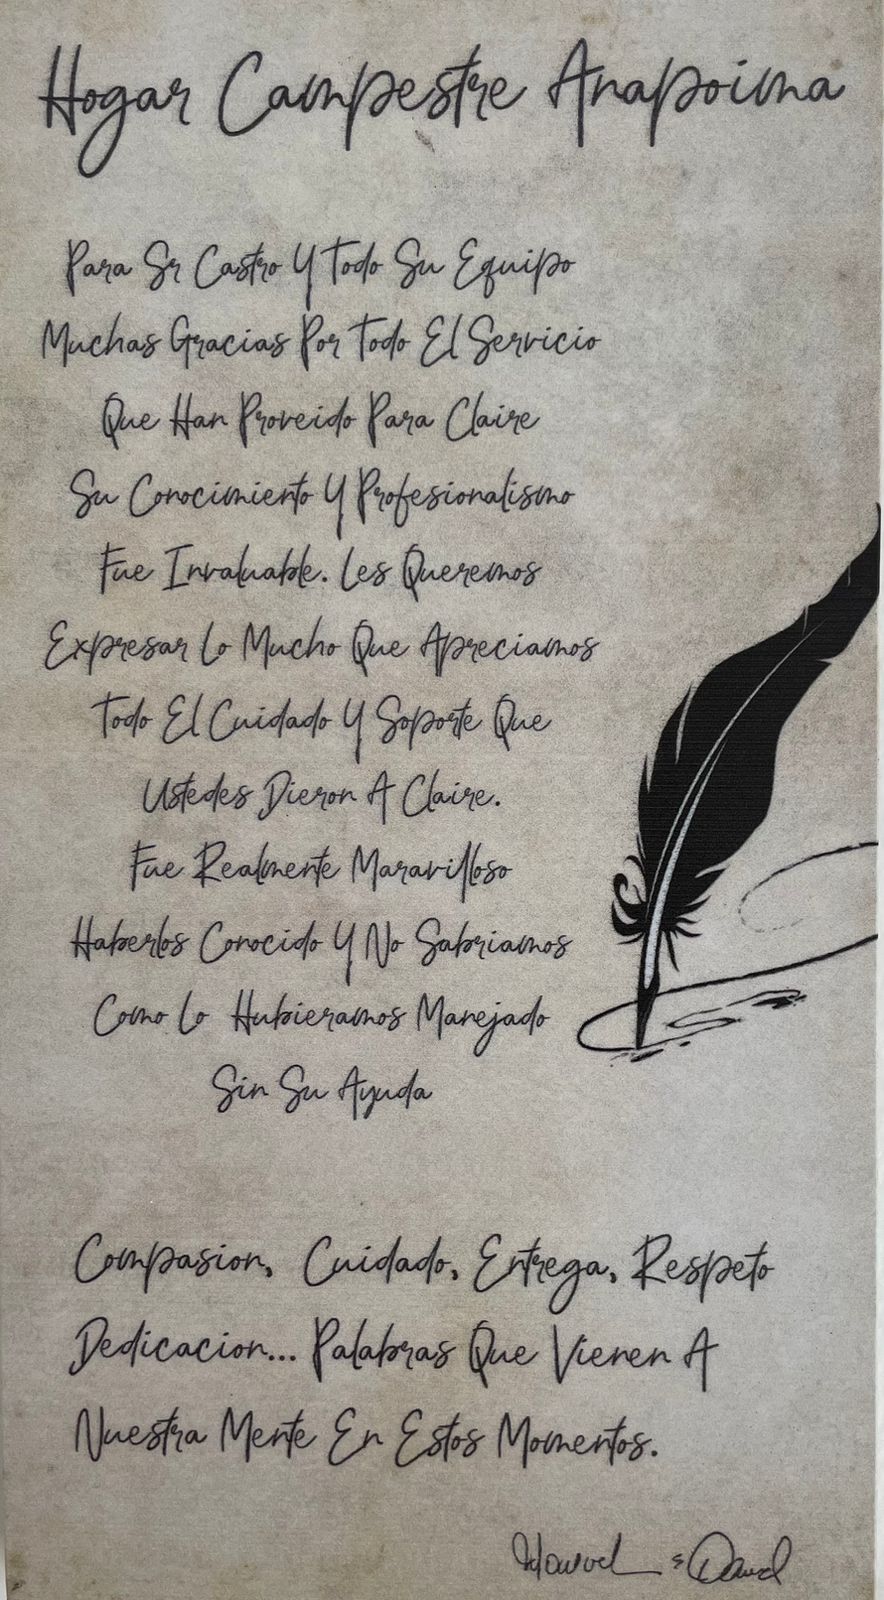 Hogar Campestre Anapoima
Para Sr Castro Y Todo Su Equipo
Muchas Gracias Por Todo El Servicio
Que Han Proveido Para Claire
Su Conocimiento Y Profesionalismo
Fue Invaluable. Les Queremos
Expresar Lo Mucho Que Apreciamos
Todo El Cuidado Y Soporte Que
Ustedes Dieron A Claire.
Fue Realmente Maravilloso
Haberlos Conocido Y No Sabriamos
Como Lo Hubieramos Manejado
Sin Su Ayuda
Compasion, Cuidado, Entrega, Respeto
Dedicacion... Palabras Que Vienen A
Nuestra Mente En Estos Momentos.
David